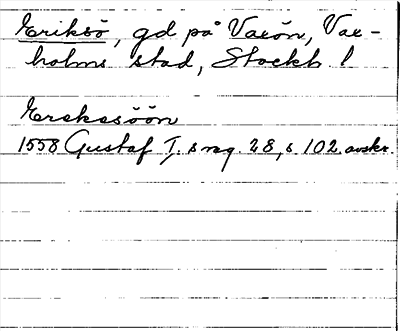 Eriksö, gd på Vaxön, Vax-
holms stad, Stockh l
Erekssöön
1558 Gustaf I.s reg. 28, s. 102 avskr.